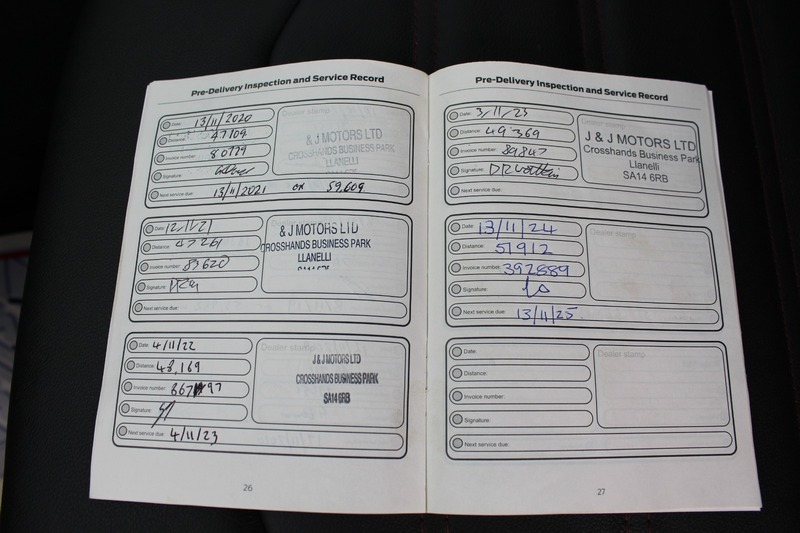 Pre-Delivery Inspection and Service Record
Date: 13/11/2020
Distance:
Invoice number:
Signature:
Next service due: 13/11/2021 or 59,609
Dealer stamp
& J MOTORS LTD
CROSSHANDS BUSINESS PARK
LLANELLI
Date: 12/11/21
Distance: 47261
Invoice number: 83620
Signature:
Next service due:
& J MOTORS LTD
CROSSHANDS BUSINESS PARK
LLANELLI
Date: 4/11/22
Distance: 48,169
Invoice number:
Signature:
Next service due: 4/11/23
Dealer stamp
J & J MOTORS LTD
CROSSHANDS BUSINESS PARK
SA14 6RB
26
Pre-Delivery Inspection and Service Record
Date: 3/11/23
Distance: 49369
Invoice number: 89847
Signature:
Next service due:
Dealer stamp
J & J MOTORS LTD
Crosshands Business Park
Llanelli
SA14 6RB
Date: 13/11/24
Distance: 51912
Invoice number: 392889
Signature:
Next service due: 13/11/25.
Dealer stamp
Date:
Distance:
Invoice number:
Signature:
Next service due:
Dealer stamp
27